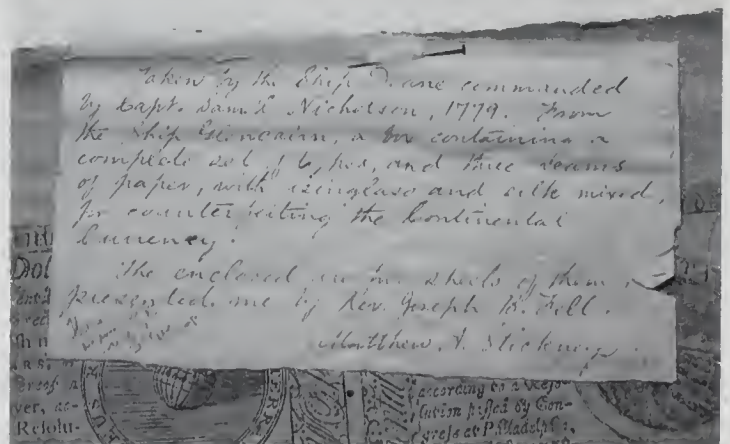 Taken by the Ship Deane commanded
by Capt. Sam'l Nicholson, 1779. From
the Ship Glencairn, a box containing a
complete set of types, and three reams
of paper, with isinglass and silk mixed,
for counterfeiting the Continental
Currency.
The enclosed are two sheets of them
presented me by Rev. Joseph B. Felt.
Matthew A. Stickney.
Dol
ver, ac-
Resolu-
according to a Reso-
lution passed by Con-
gress at Philadelph